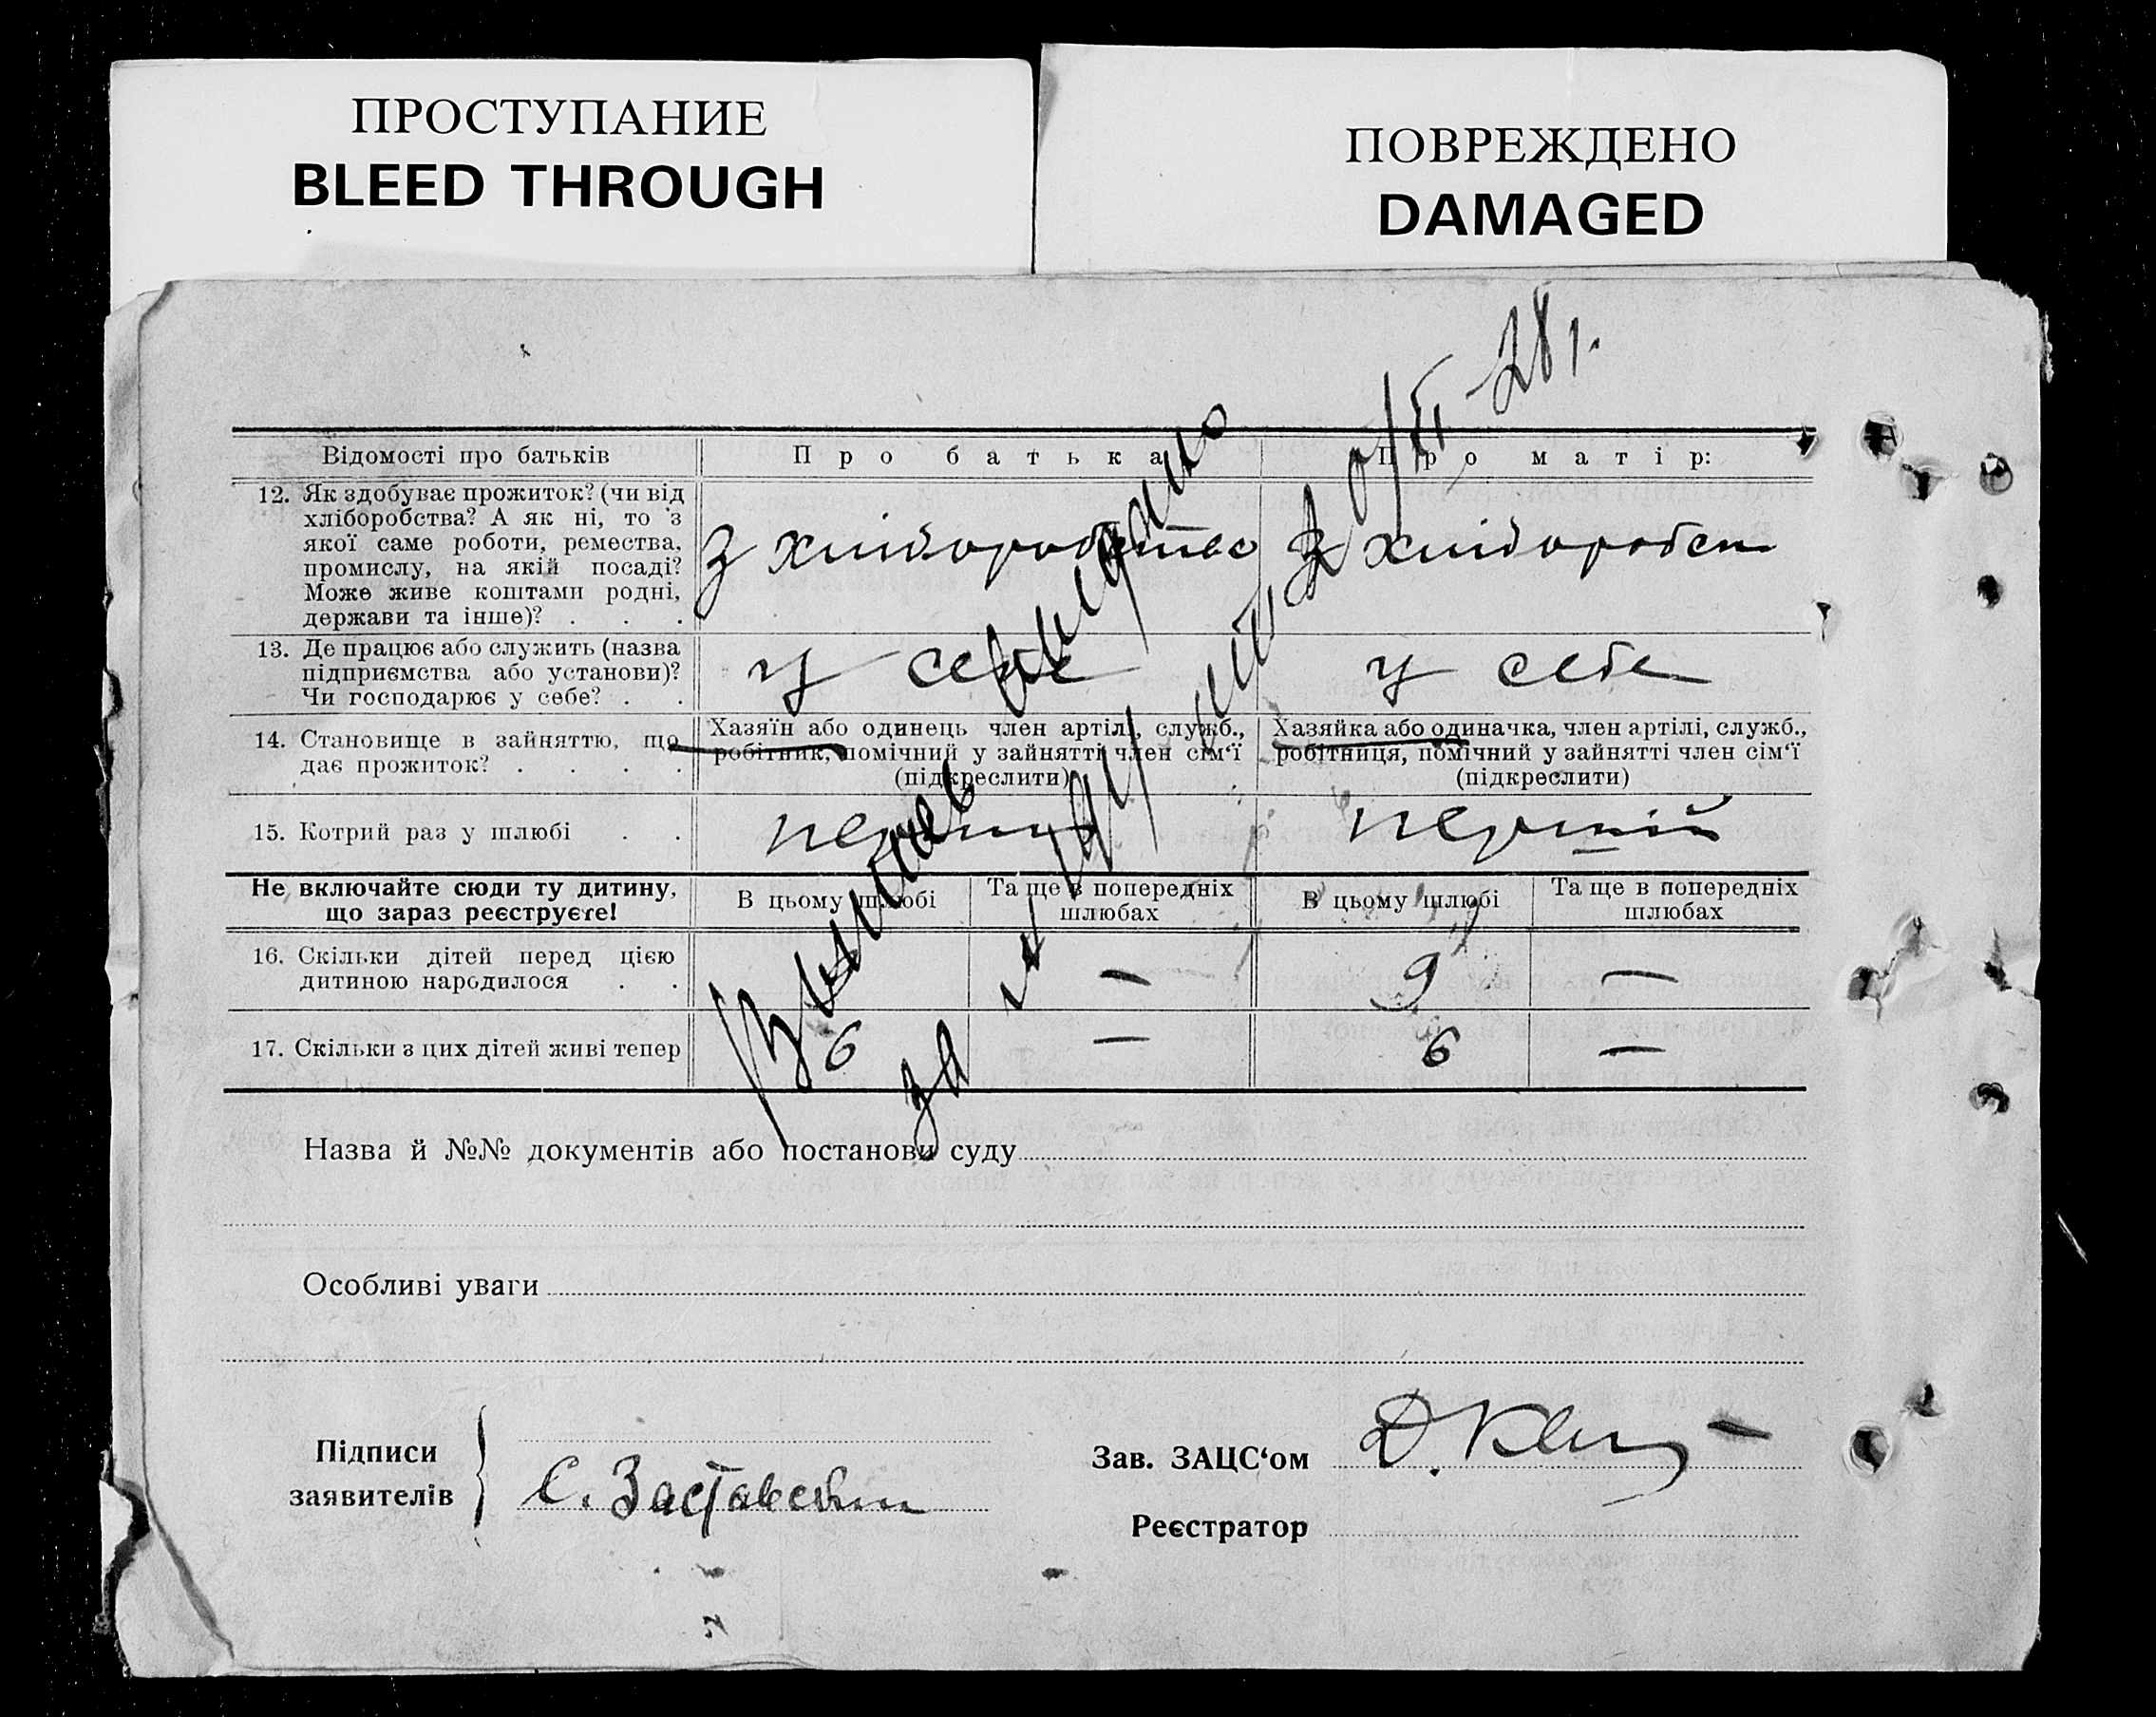 ПРОСТУПАНИЕ
BLEED THROUGH
ПОВРЕЖДЕНО
DAMAGED
28 г.
Відомості про батьків
Про батька
Про матір:
12. Як здобуває прожиток? (чи від
хліборобства? А як ні, то з
якої саме роботи, ремества,
промислу, на якій посаді?
Може живе коштами родні,
держави та інше)? . . .
З хліборобства
З хліборобств
13. Де працює або служить (назва
підприємства або установи)?
Чи господарює у себе? . .
у себе
у себе
14. Становище в зайняттю, що
дає прожиток? . . . .
Хазяїн або одинець член артілі, служб.,
робітник, помічний у зайнятті член сім‘ї
(підкреслити)
Хазяйка або одиначка, член артілі, служб.,
робітниця, помічний у зайнятті член сім‘ї
(підкреслити)
15. Котрий раз у шлюбі . .
перший
перший
Не включайте сюди ту дитину,
що зараз реєструєте!
В цьому шлюбі
Та ще в попередніх
шлюбах
В цьому шлюбі
Та ще в попередніх
шлюбах
16. Скільки дітей перед цією
дитиною народилося . .
—
9
—
17. Скільки з цих дітей живі тепер
6
—
6
—
Назва й №№ документів або постанови суду
Особливі уваги
Підписи
заявителів
С. Заставський
Зав. ЗАЦС‘ом
Реєстратор